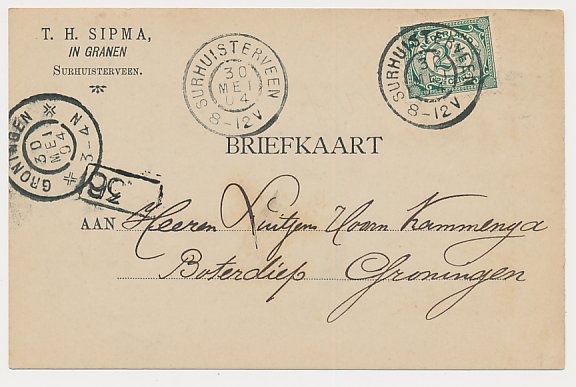 T. H. SIPMA,
IN GRANEN
SURHUISTERVEEN.
SURHUISTERVEEN
30
MEI
04
8-12V
SURHUISTERVEEN
8-12V
GRONINGEN
30
MEI
04
3-4N
BRIEFKAART
AAN Heeren Luitjens Hoorn Kammenga
Boterdiep Groningen